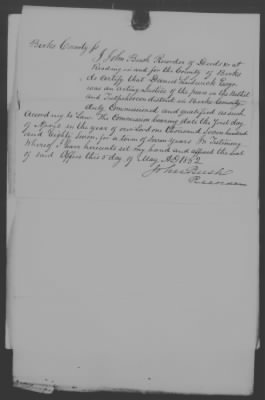 Berks County ss
I John Bush Recorder of Deeds &c at
Reading in and for the County of Berks
do certify that Daniel Ludwick Esqr
was an acting Justice of the peace in the Bethel
and Tulpehoccon district in Berks County
duly Commissioned and qualified as such
According to Law. The Commission bearing date the first day
of in the year of our Lord one thousand Seven hundred
and Eighty Seven for a term of Seven years In Testimony
Whereof I have hereunto set my hand and affixed the Seal
of said Office this 5 day of May AD 1852
John Bush
Recorder